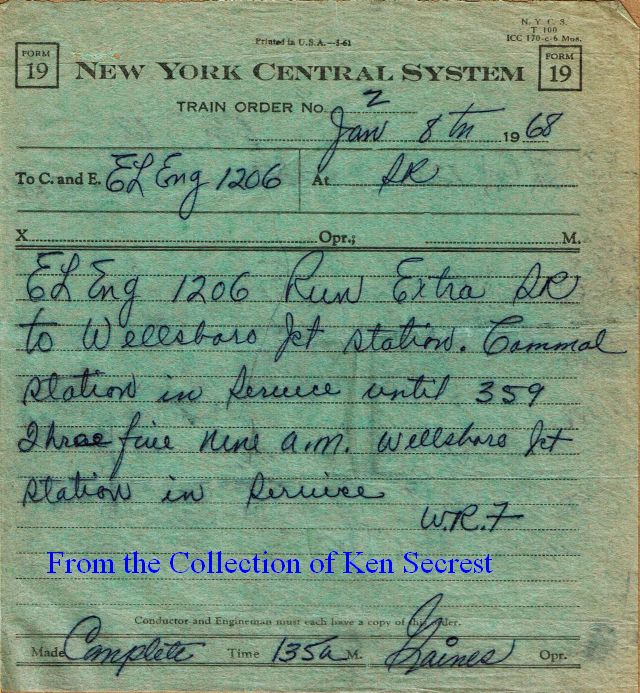 N. Y. C. S.
T 100
ICC 170-c-6 Mos.
Printed in U.S.A.—5-61
FORM 19
NEW YORK CENTRAL SYSTEM
FORM 19
TRAIN ORDER No. 2
Jan 8th 1968
To C. and E. EL Eng 1206 At SR
X Opr.; M.
EL Eng 1206 Run Extra SR
to Wellsboro Jct station. Cammal
station in service until 359
Three five nine a.m. Wellsboro Jct
station in service
W.R.F
From the Collection of Ken Secrest
Conductor and Engineman must each have a copy of this order.
Made Complete Time 135a M. Gaines Opr.